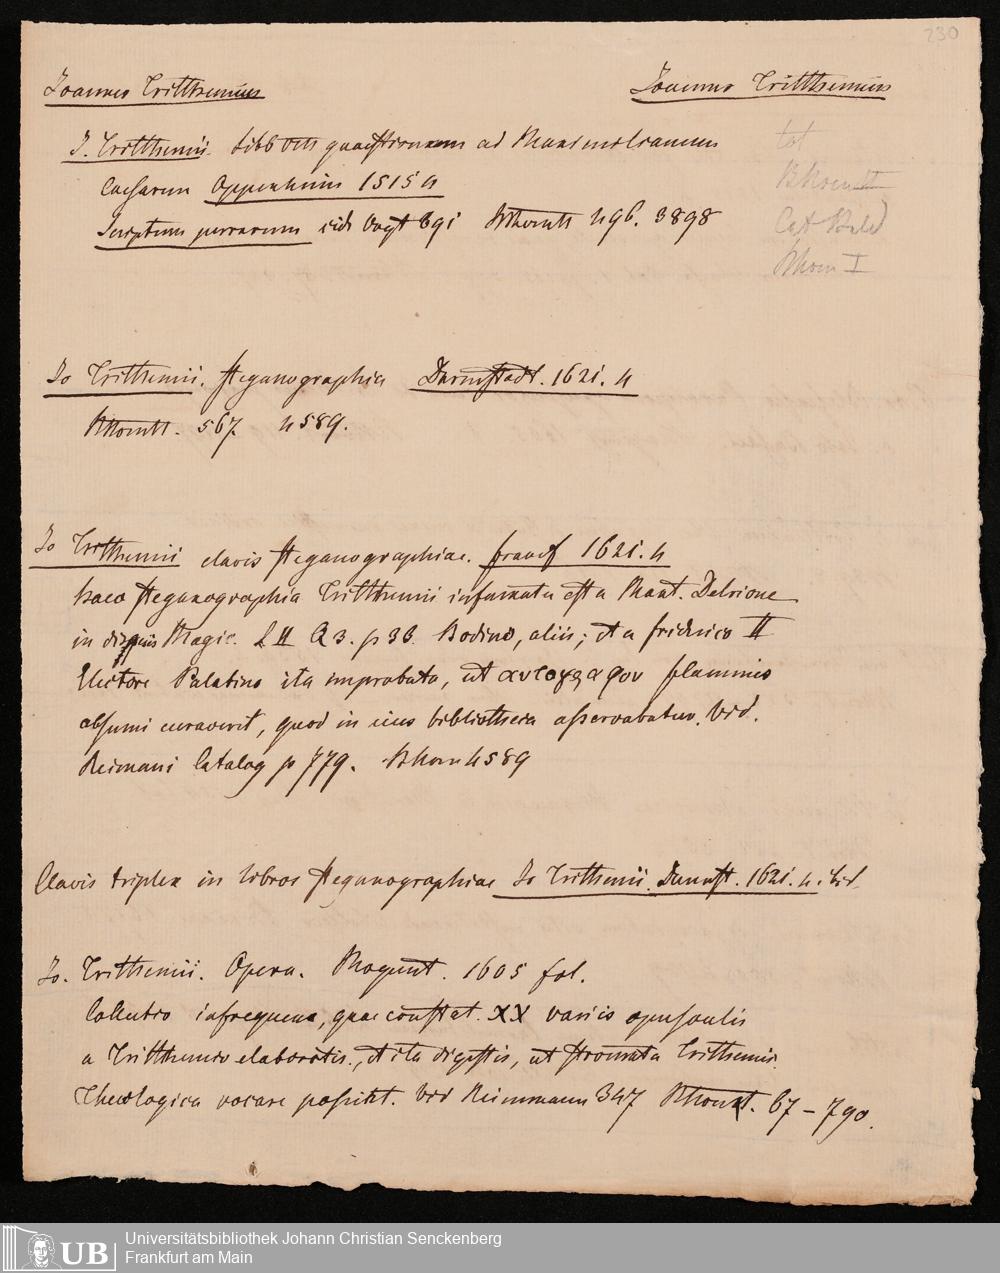 230
Joannes Tritthemius Joannes Tritthemius
J. Tritthemii Libb VIII quaestionum ad Maximilianum
Caesarem Oppenheim 1515 4
Scriptum perrarum vide Vogt 691 496. 3898
tot
Cat
I
Jo Trithemii. Steganographia Darmstadt. 1621. 4
567. 4589.
Jo Tritthemii clavis Steganographiae. francf 1621. 4
haec Steganographia Tritthemii infamata est a Mart. Delrione
in Magic. L II Q 3. p 36. Bodino, aliis; et a fridrico II
Electore Palatino ita improbata, ut αυτογραφον flammis
absumi curaverit, quod in eius bibliotheca asservabatur. Vid.
Reimani Catalog p 779. 4589
Clavis triplex in libros Steganographiae Jo Trithemii. Darmst. 1621. 4.
Jo. Trithemii. Opera. Mogunt. 1605 fol.
Collectio infrequens, quae constat. XX variis opusculis
a Tritthemio elaboratis, et ita digestis, ut stromata Trithemii
Theologica vocare possint. Vid Reimmann 347 67 – 790.
UB
Universitätsbibliothek Johann Christian Senckenberg
Frankfurt am Main